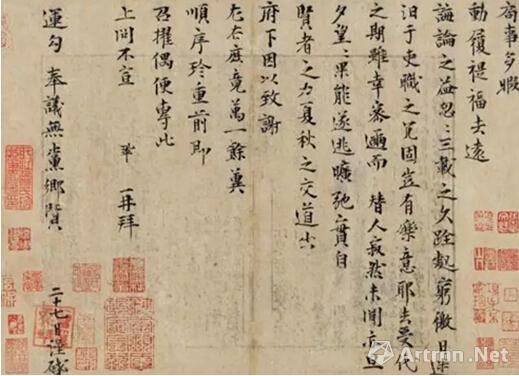 局事多暇
動履禔福去遠
誨論之益忽忽三載之久跧處窮徼日迷
汨于吏職之冗固豈有樂意耶去受代
之期雖幸密邇而替人寂然未聞亦旦
夕望望果能遂逃曠弛實自
賢者之力夏秋之交道出
府下因以致謝
左右庶竟萬一餘冀
順序珍重前即
召擢偶便專此
上問不宣 鞏 再拜
運勾奉議無黨鄉賢 二十七日謹啓
Artron.Net